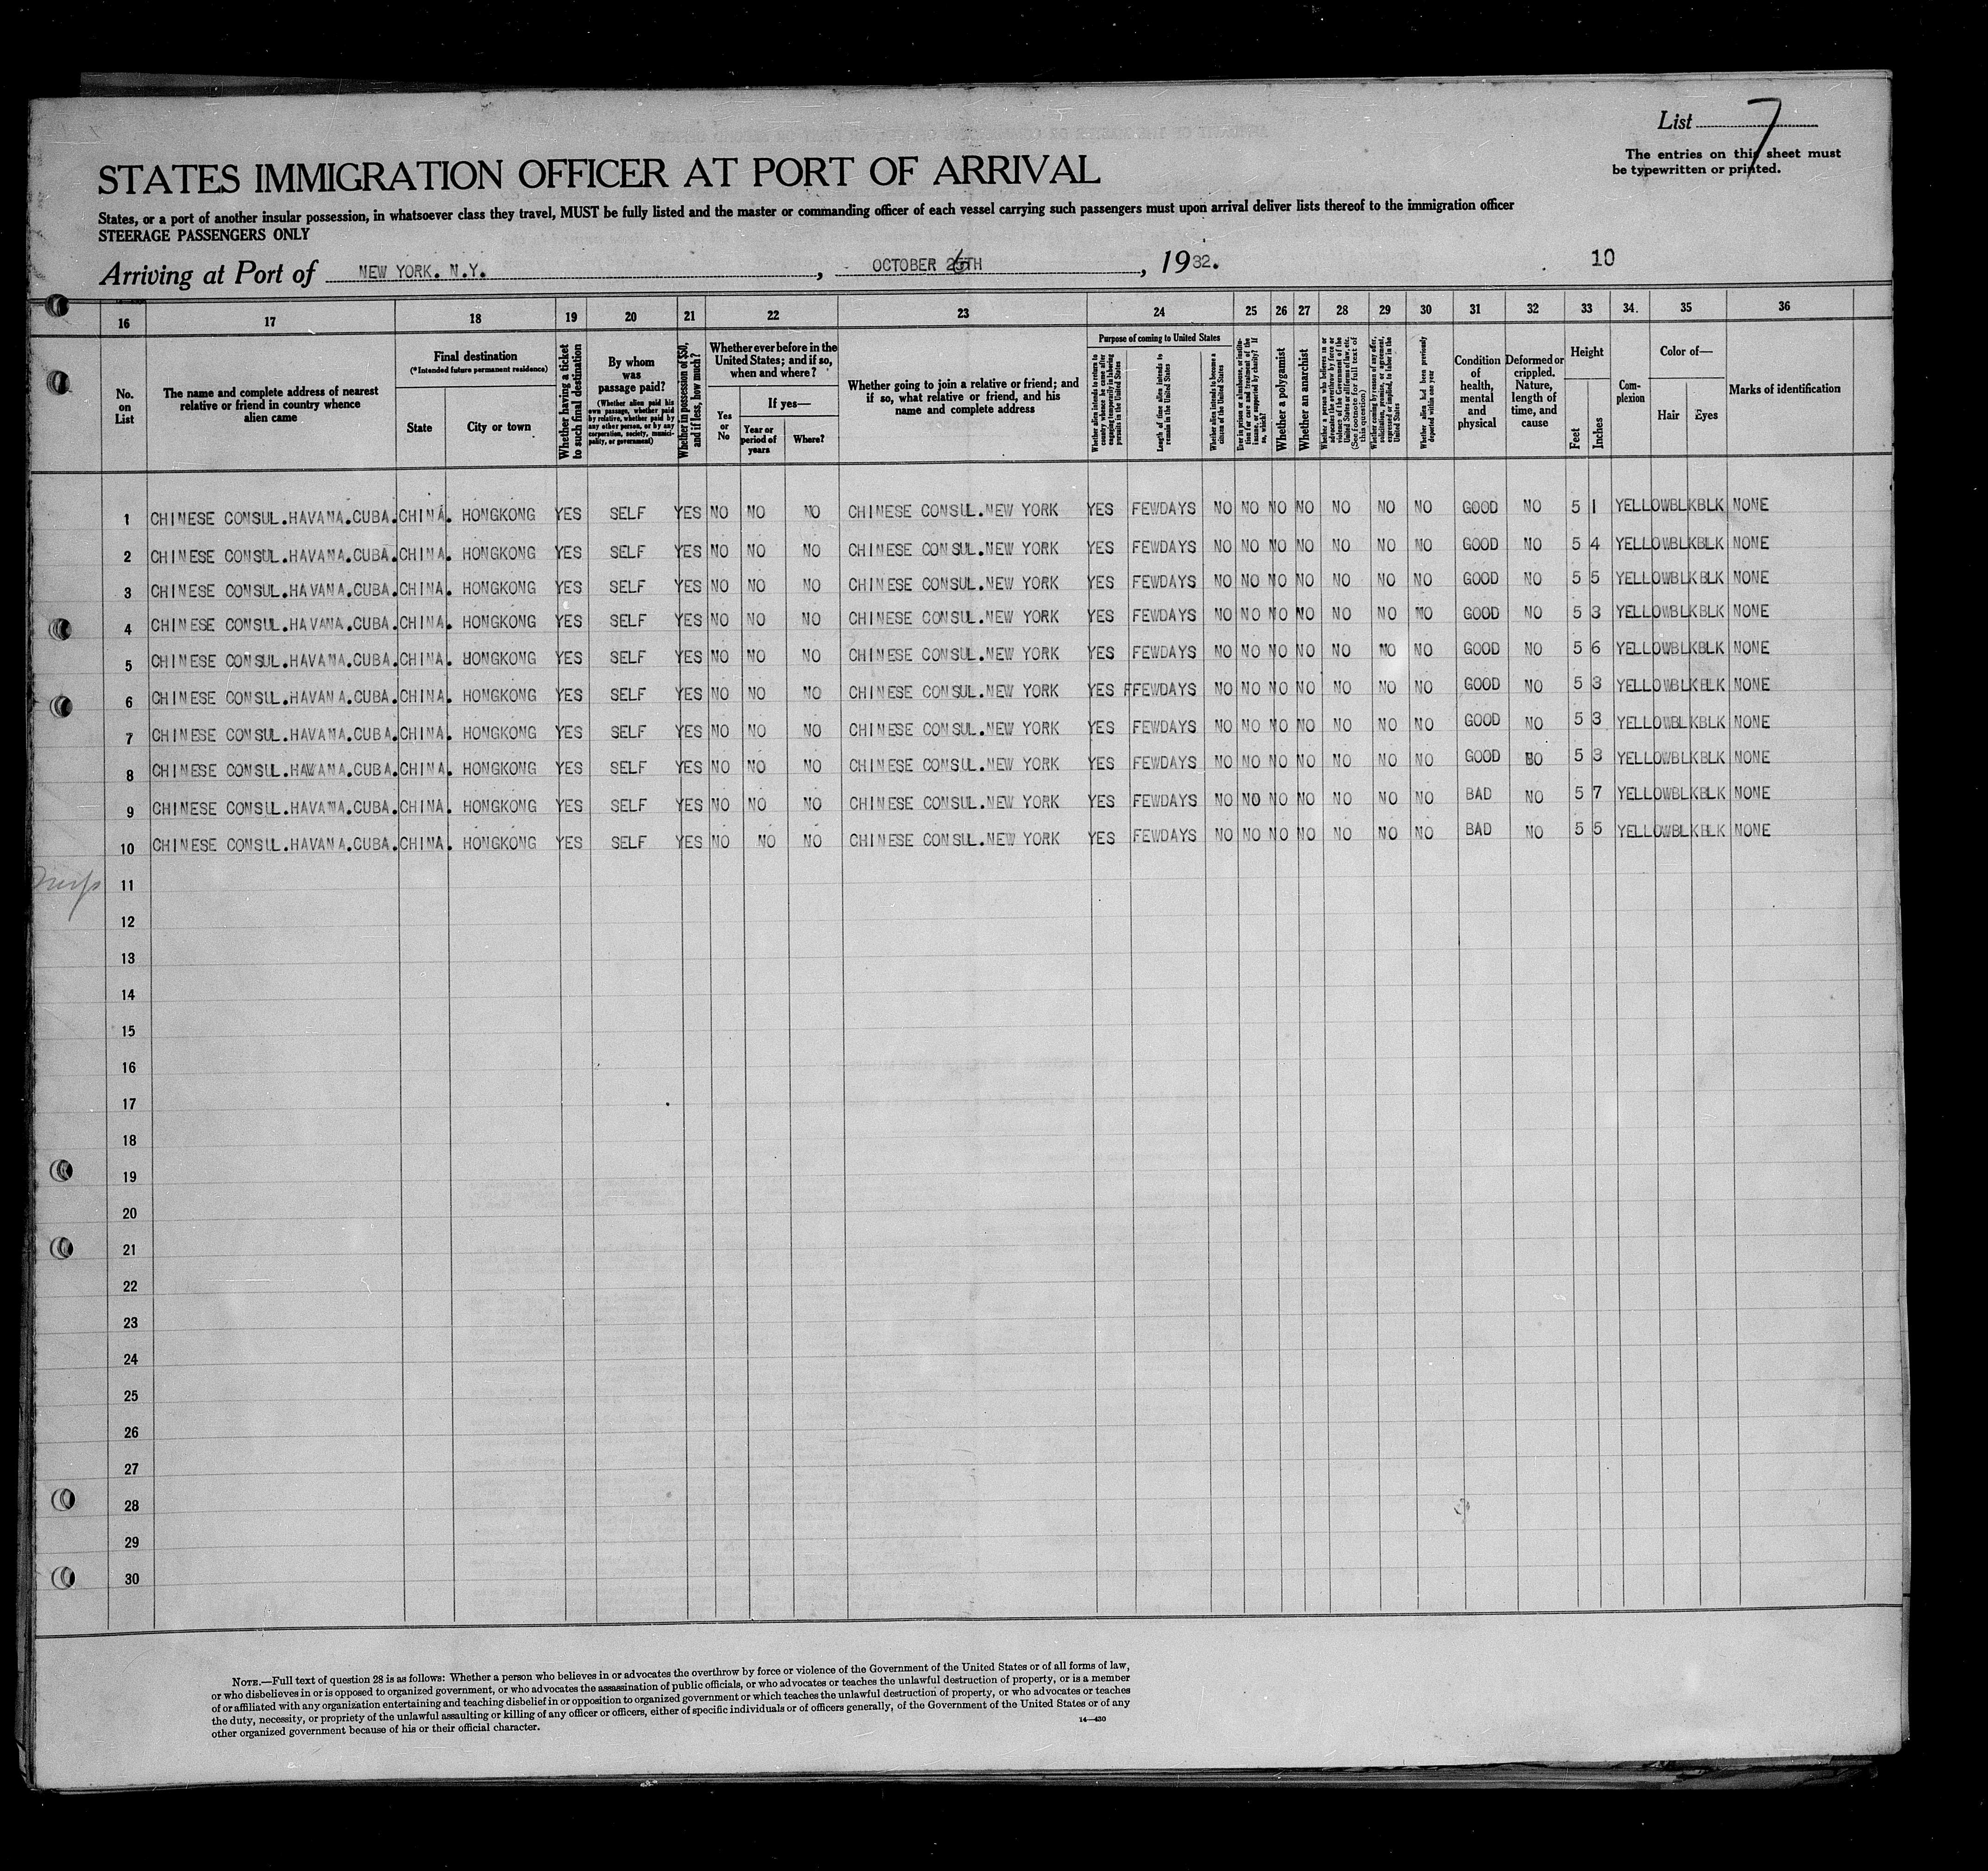 List 7
The entries on this sheet must
be typewritten or printed.
STATES IMMIGRATION OFFICER AT PORT OF ARRIVAL
States, or a port of another insular possession, in whatsoever class they travel, MUST be fully listed and the master or commanding officer of each vessel carrying such passengers must upon arrival deliver lists thereof to the immigration officer
STEERAGE PASSENGERS ONLY
Arriving at Port of NEW YORK. N.Y. , OCTOBER 26TH , 1932. 10
16 17 18 19 20 21 22 23 24 25 26 27 28 29 30 31 32 33 34. 35 36
No. on List
The name and complete address of nearest relative or friend in country whence alien came
Final destination
(*Intended future permanent residence)
State
City or town
Whether having a ticket to such final destination
By whom was passage paid?
(Whether alien paid his own passage, whether paid by relative, whether paid by any other person, or by any corporation, society, municipality, or government)
Whether in possession of $50, and if less, how much?
Whether ever before in the United States; and if so, when and where?
Yes or No
If yes—
Year or period of years
Where?
Whether going to join a relative or friend; and if so, what relative or friend, and his name and complete address
Purpose of coming to United States
Whether alien intends to return to country whence he came after engaging temporarily in laboring pursuits in the United States
Length of time alien intends to remain in the United States
Whether alien intends to become a citizen of the United States
Ever in prison or almshouse, or institution for care and treatment of the insane, or supported by charity? If so, which?
Whether a polygamist
Whether an anarchist
Whether a person who believes in or advocates the overthrow by force or violence of the Government of the United States or all forms of law, (See footnote for full text of this question)
Whether coming by reason of any offer, solicitation, promise, or agreement, expressed or implied, to labor in the United States
Whether alien had been previously deported within one year
Condition of health, mental and physical
Deformed or crippled. Nature, length of time, and cause
Height
Feet
Inches
Com-plexion
Color of—
Hair
Eyes
Marks of identification
1 CHINESE CONSUL.HAVANA.CUBA. CHINA. HONGKONG YES SELF YES NO NO NO CHINESE CONSUL.NEW YORK YES FEWDAYS NO NO NO NO NO NO NO GOOD NO 5 1 YELLOW BLK BLK NONE
2 CHINESE CONSUL.HAVANA.CUBA. CHINA. HONGKONG YES SELF YES NO NO NO CHINESE CONSUL.NEW YORK YES FEWDAYS NO NO NO NO NO NO NO GOOD NO 5 4 YELLOW BLK BLK NONE
3 CHINESE CONSUL.HAVANA.CUBA. CHINA. HONGKONG YES SELF YES NO NO NO CHINESE CONSUL.NEW YORK YES FEWDAYS NO NO NO NO NO NO NO GOOD NO 5 5 YELLOW BLK BLK NONE
4 CHINESE CONSUL.HAVANA.CUBA. CHINA. HONGKONG YES SELF YES NO NO NO CHINESE CONSUL.NEW YORK YES FEWDAYS NO NO NO NO NO NO NO GOOD NO 5 3 YELLOW BLK BLK NONE
5 CHINESE CONSUL.HAVANA.CUBA. CHINA. HONGKONG YES SELF YES NO NO NO CHINESE CONSUL.NEW YORK YES FEWDAYS NO NO NO NO NO NO NO GOOD NO 5 6 YELLOW BLK BLK NONE
6 CHINESE CONSUL.HAVANA.CUBA. CHINA. HONGKONG YES SELF YES NO NO NO CHINESE CONSUL.NEW YORK YES FFEWDAYS NO NO NO NO NO NO NO GOOD NO 5 3 YELLOW BLK BLK NONE
7 CHINESE CONSUL.HAVANA.CUBA. CHINA. HONGKONG YES SELF YES NO NO NO CHINESE CONSUL.NEW YORK YES FEWDAYS NO NO NO NO NO NO NO GOOD NO 5 3 YELLOW BLK BLK NONE
8 CHINESE CONSUL.HAVANA.CUBA. CHINA. HONGKONG YES SELF YES NO NO NO CHINESE CONSUL.NEW YORK YES FEWDAYS NO NO NO NO NO NO NO GOOD NO 5 3 YELLOW BLK BLK NONE
9 CHINESE CONSUL.HAVANA.CUBA. CHINA. HONGKONG YES SELF YES NO NO NO CHINESE CONSUL.NEW YORK YES FEWDAYS NO NO NO NO NO NO NO BAD NO 5 7 YELLOW BLK BLK NONE
10 CHINESE CONSUL.HAVANA.CUBA. CHINA. HONGKONG YES SELF YES NO NO NO CHINESE CONSUL.NEW YORK YES FEWDAYS NO NO NO NO NO NO NO BAD NO 5 5 YELLOW BLK BLK NONE
11
12
13
14
15
16
17
18
19
20
21
22
23
24
25
26
27
28
29
30
NOTE.—Full text of question 28 is as follows: Whether a person who believes in or advocates the overthrow by force or violence of the Government of the United States or of all forms of law,
or who disbelieves in or is opposed to organized government, or who advocates the assassination of public officials, or who advocates or teaches the unlawful destruction of property, or is a member
of or affiliated with any organization entertaining and teaching disbelief in or opposition to organized government or which teaches the unlawful destruction of property, or who advocates or teaches
the duty, necessity, or propriety of the unlawful assaulting or killing of any officer or officers, either of specific individuals or of officers generally, of the Government of the United States or of any
other organized government because of his or their official character.
14—430